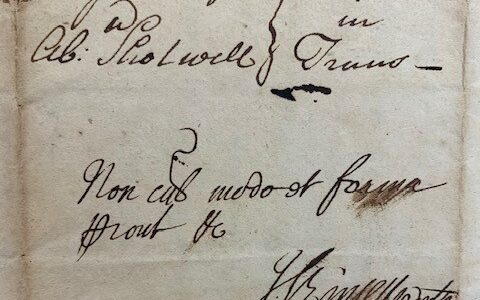 in
Ab: Shotwell } Trans —
Non cul modo et forma
prout &c